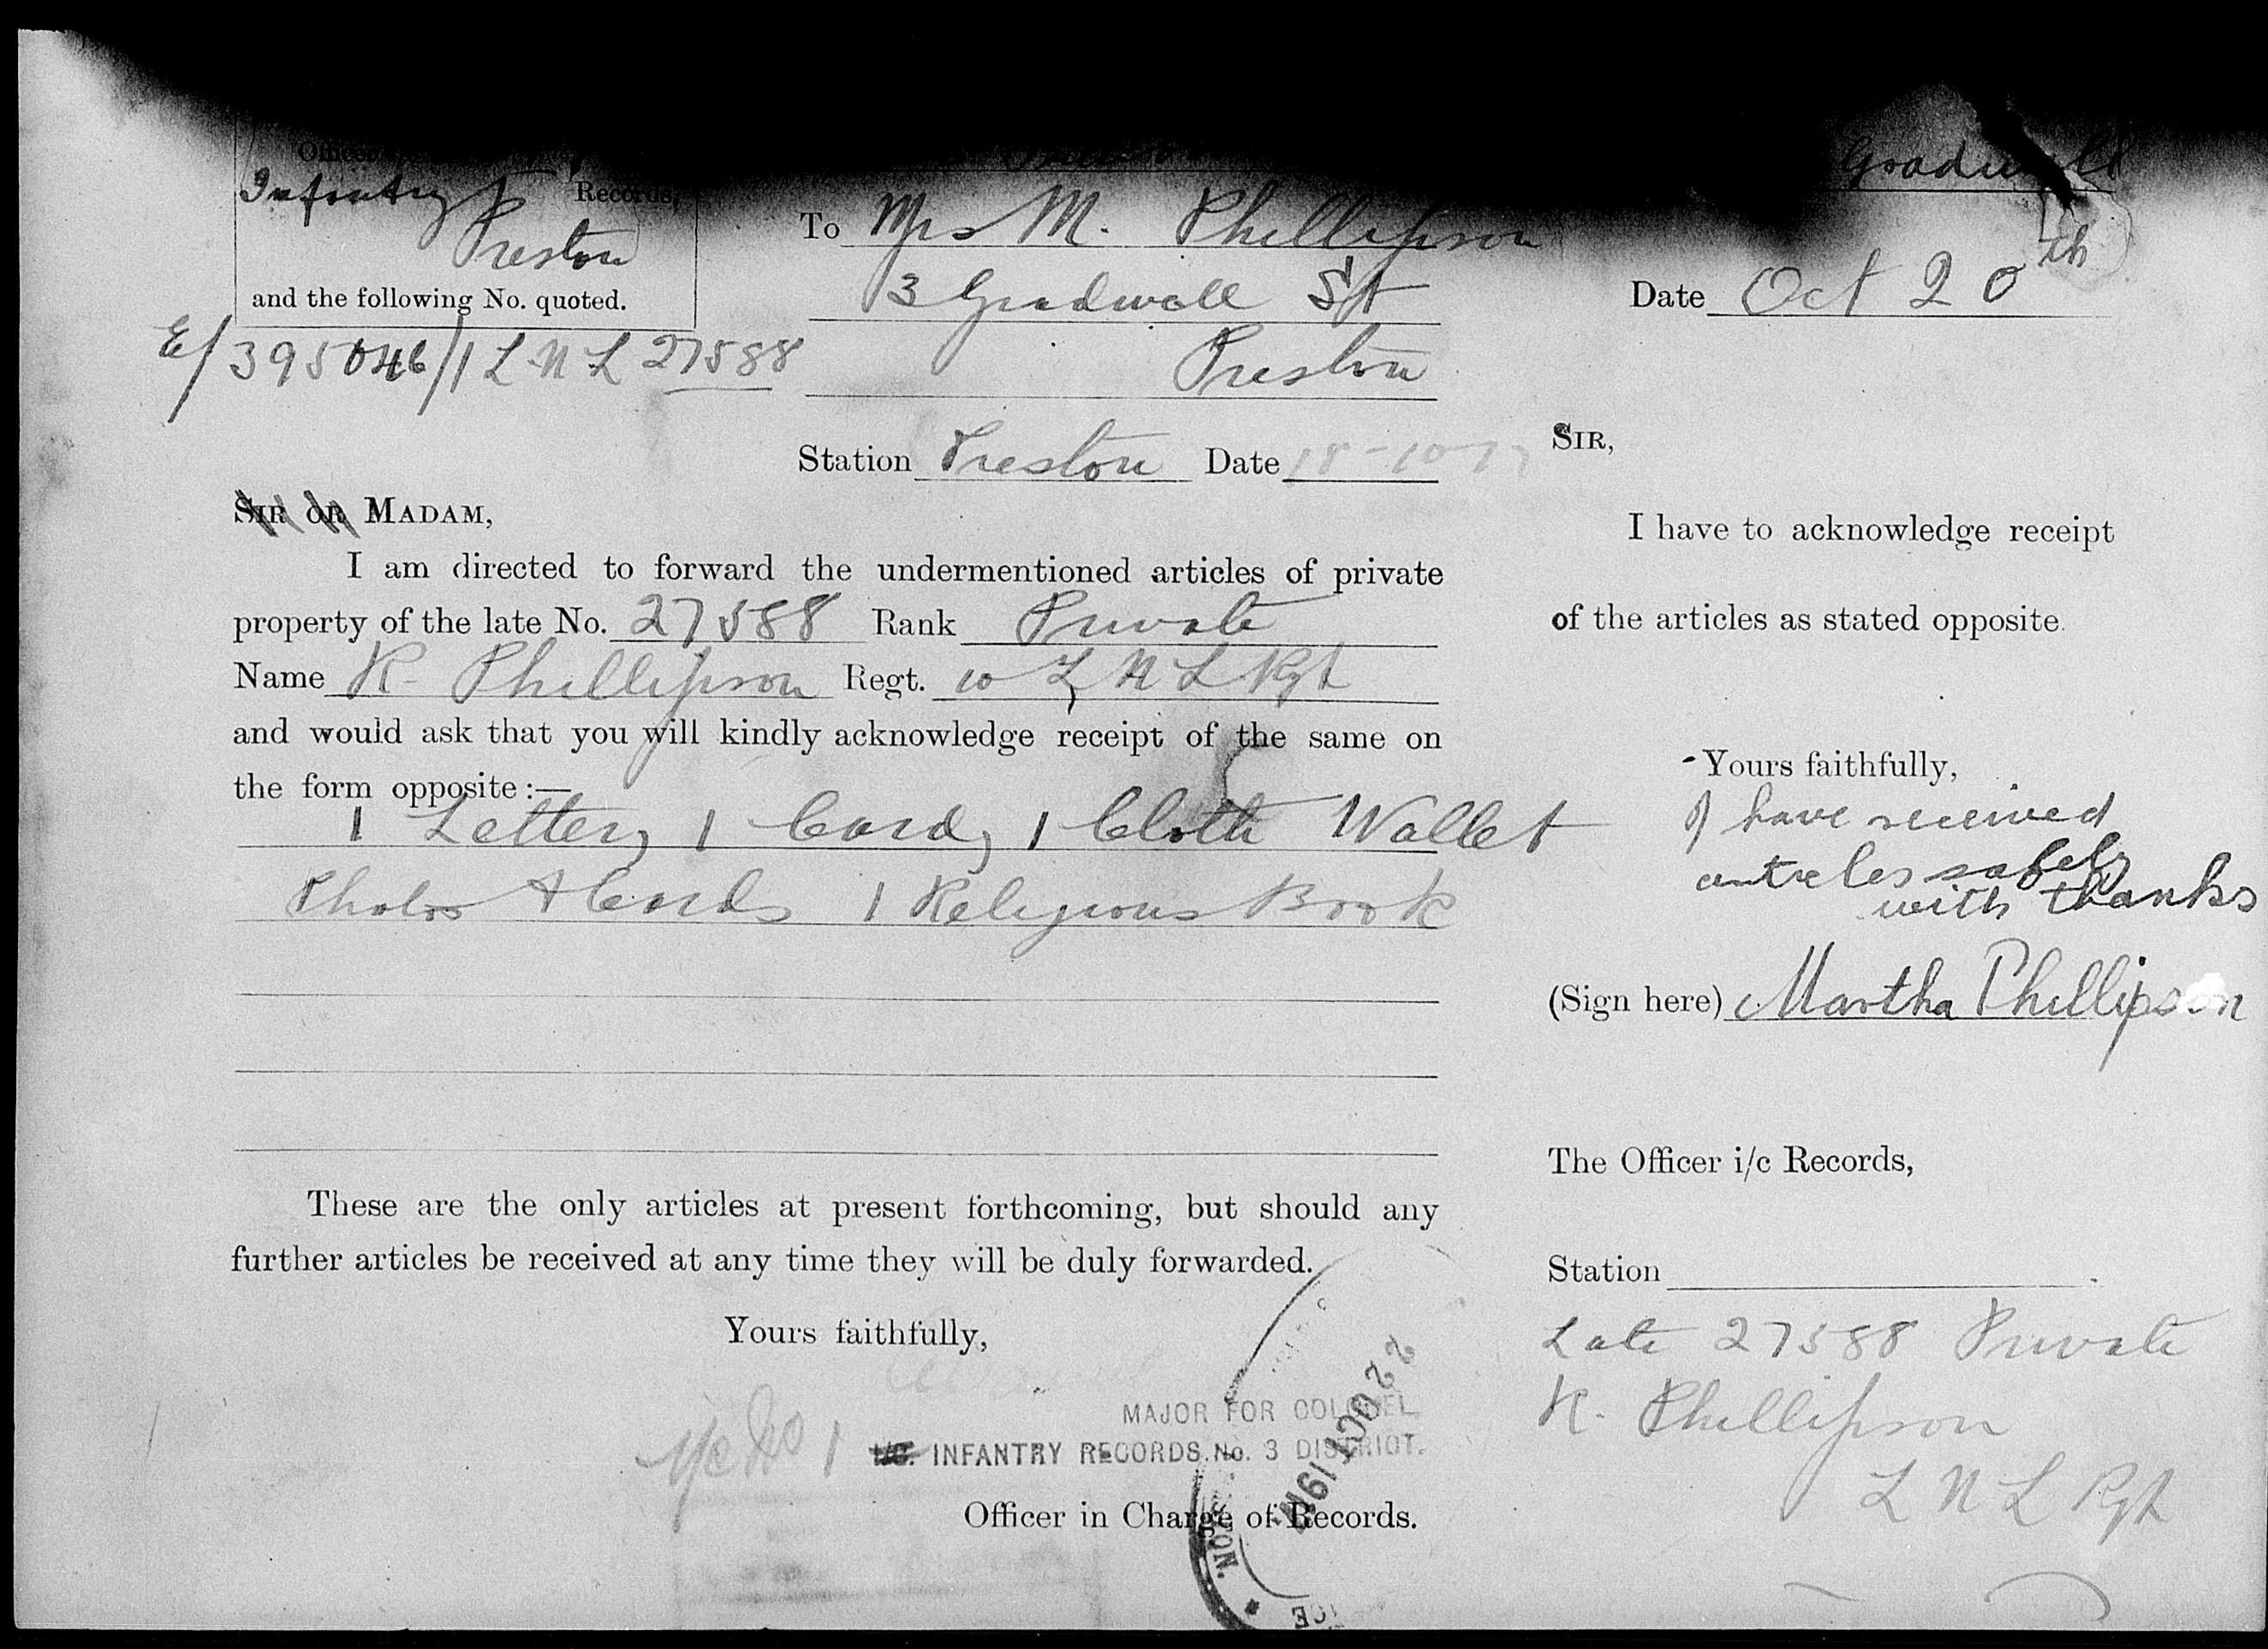 Officer
Infantry Records,
Preston
and the following No. quoted.
E/395046/1 L N L 27588
To Mrs M. Phillipson
3 Gradwell St
Preston
Station Preston Date 18-10-17
SIR OR MADAM,
I am directed to forward the undermentioned articles of private
property of the late No. 27588 Rank Private
Name R. Phillipson Regt. 10 L N L Rgt
and would ask that you will kindly acknowledge receipt of the same on
the form opposite :—
1 Letter, 1 Card, 1 Cloth Wallet
Photos & Cards 1 Religious Book
These are the only articles at present forthcoming, but should any
further articles be received at any time they will be duly forwarded.
Yours faithfully,
MAJOR FOR COLONEL
I/C. INFANTRY RECORDS. No. 3 DISTRICT.
Officer in Charge of Records.
22 OCT 1917
Gradwell
Date Oct 20th
SIR,
I have to acknowledge receipt
of the articles as stated opposite.
Yours faithfully,
I have received
artreles safely
with thanks
(Sign here) Martha Phillipson
The Officer i/c Records,
Station
Late 27588 Private
R. Phillipson
L N L Rgt